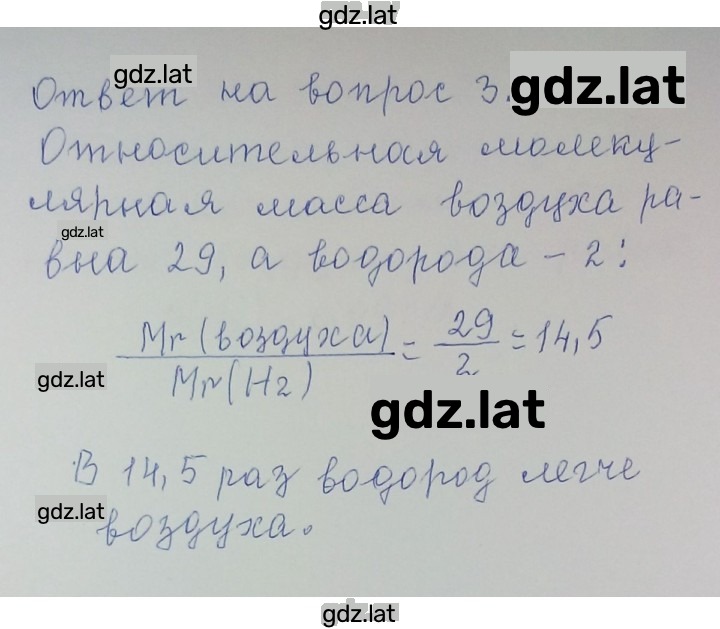 gdz.lat
gdz.lat
Ответ на вопрос 3.
gdz.lat
Относительная молеку-
лярная масса воздуха ра-
gdz.lat
вна 29, а водорода - 2:
Mr(воздуха)/Mr(H2) = 29/2 = 14,5
gdz.lat
gdz.lat
В 14,5 раз водород легче
gdz.lat
воздуха.
gdz.lat